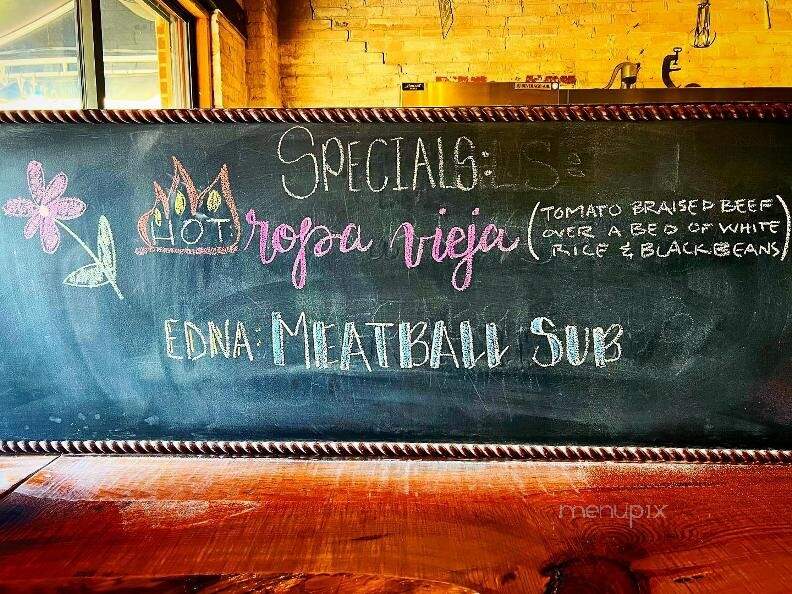 SPECIALS:
HOT ropa vieja (TOMATO BRAISED BEEF
OVER A BED OF WHITE
RICE & BLACK BEANS)
EDNA: MEATBALL SUB
menupix